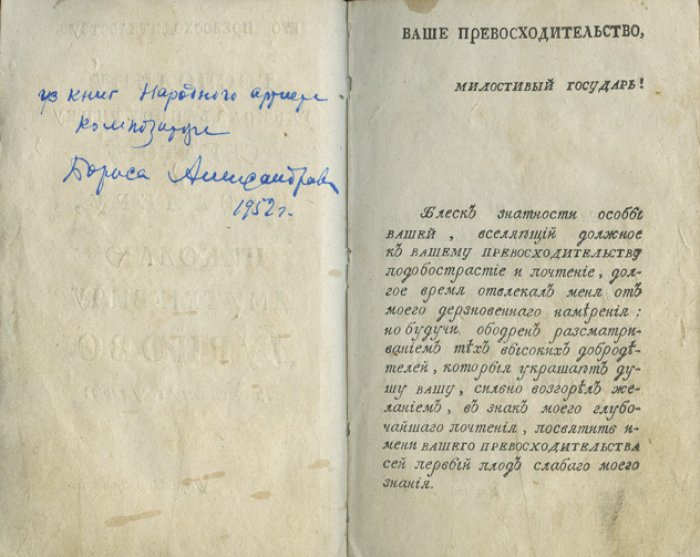 из книг Народного артиста
композитора
Бориса Александрова
1952 г.
ВАШЕ ПРЕВОСХОДИТЕЛЬСТВО,
МИЛОСТИВЫЙ ГОСУДАРЬ!
Блескъ знатности особы
ВАШЕЙ, вселяющій должное
къ ВАШЕМУ ПРЕВОСХОДИТЕЛЬСТВУ
подобострастіе и почтеніе, дол-
гое время отвлекалъ меня отъ
моего дерзновеннаго намѣренія:
но будучи ободрен разсматри-
ваніемъ тѣхъ высокихъ добродѣ-
телей, которыя украшаютъ ду-
шу ВАШУ, сильно возгорѣлъ же-
ланіемъ, въ знак моего глубо-
чайшаго почтенія, посвятить и-
мени ВАШЕГО ПРЕВОСХОДИТЕЛЬСТВА
сей первый плодъ слабаго моего
знанія.